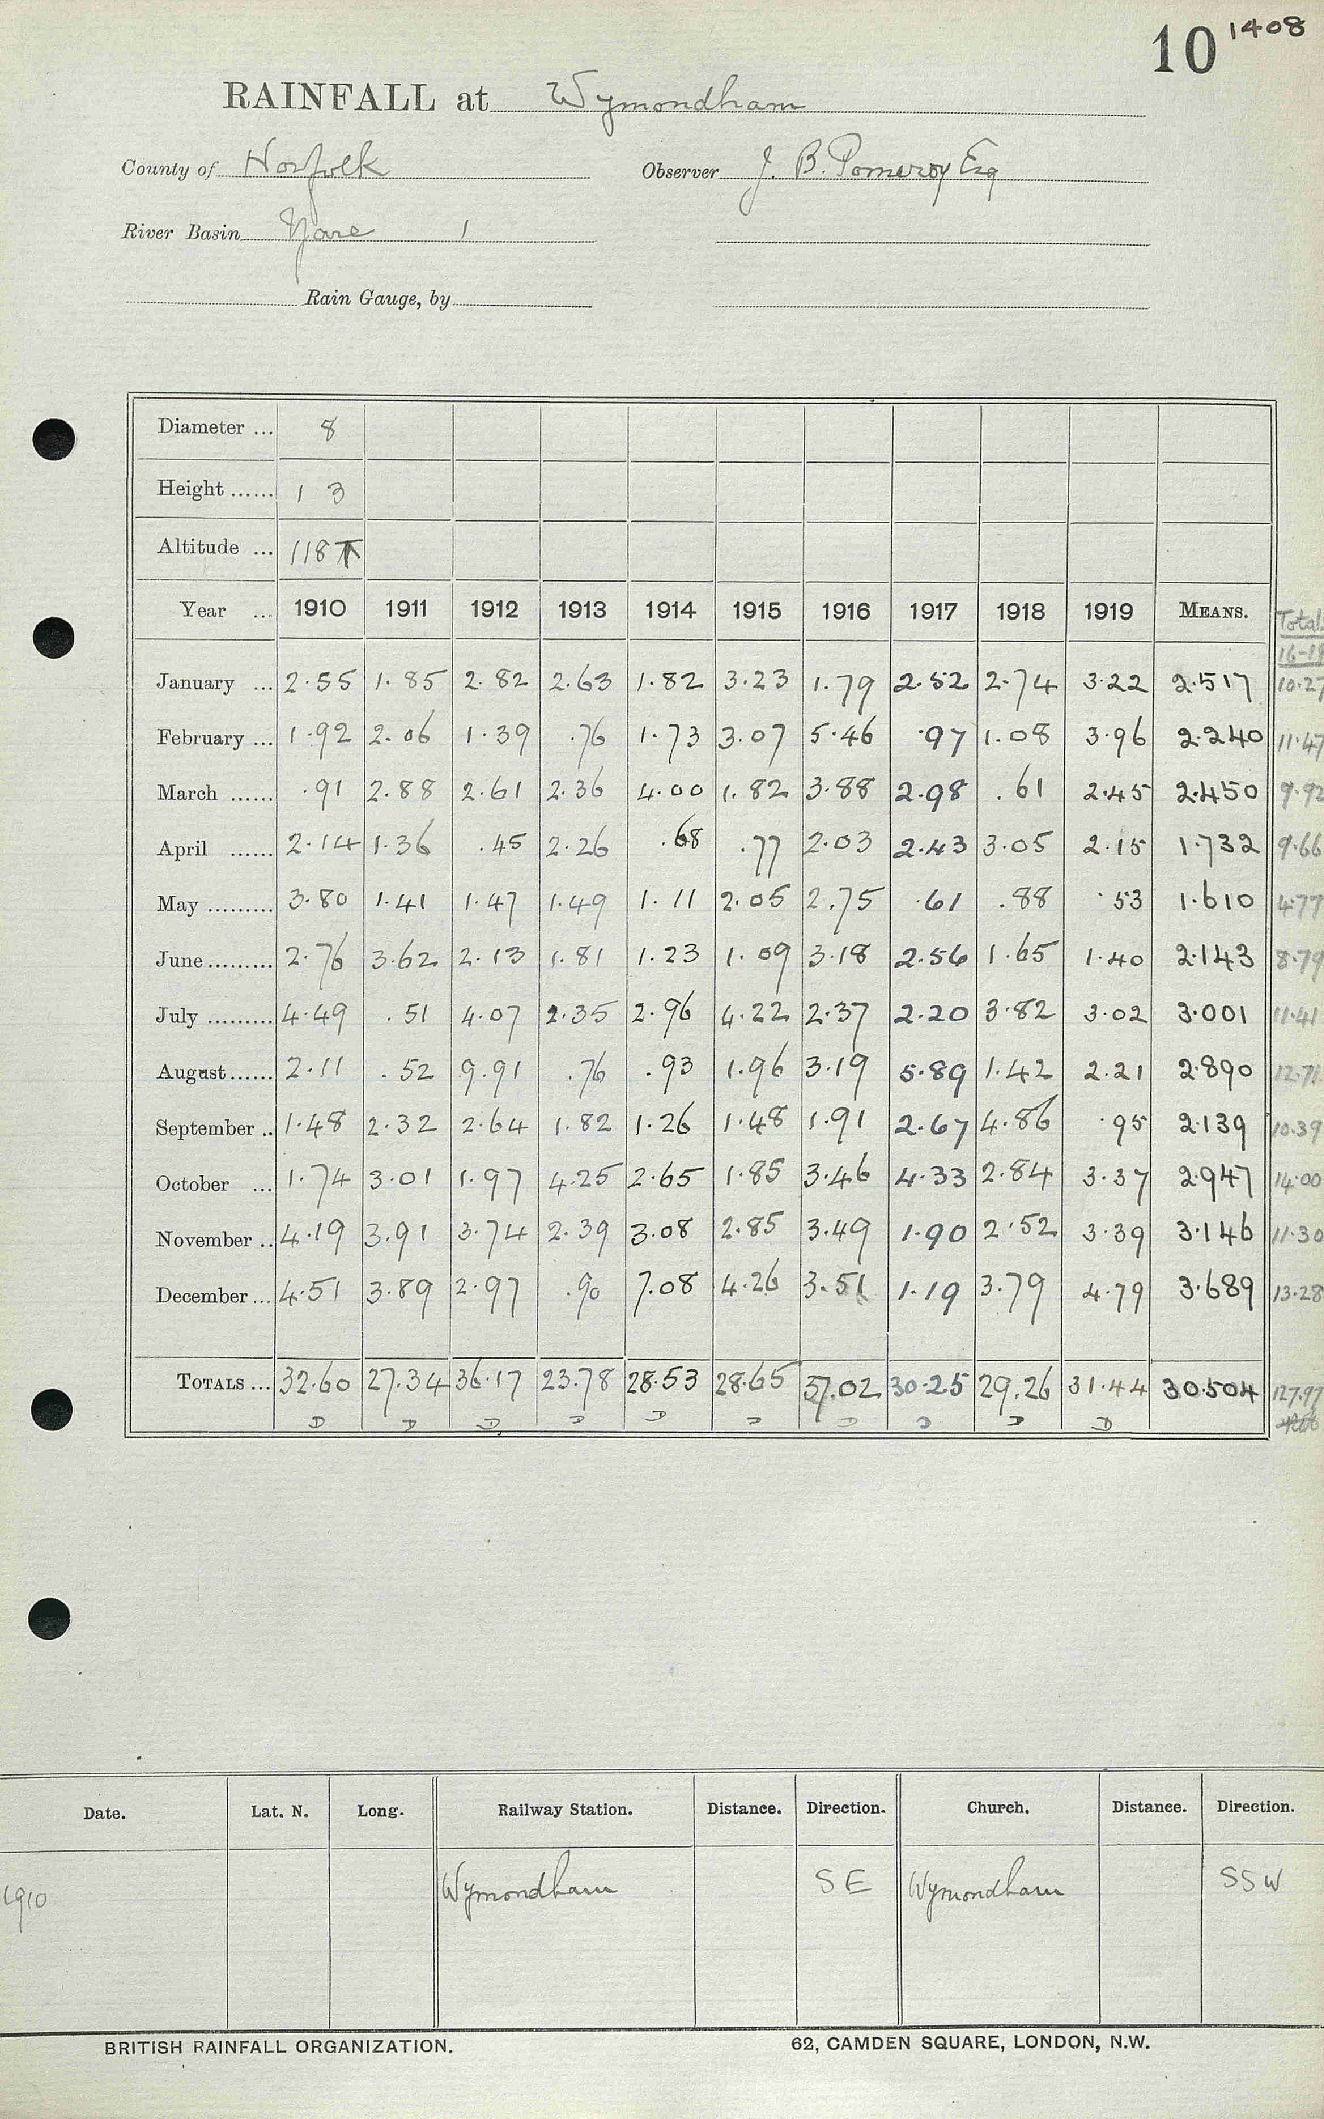 10 1408
RAINFALL at Wymondham
County of Norfolk Observer J. B. Pomeroy Esq
River Basin Yare 1
Rain Gauge, by
Diameter ... 8
Height ...... 1 3
Altitude ... 118 T
Year ... 1910 1911 1912 1913 1914 1915 1916 1917 1918 1919 MEANS. Total
16-19
January ... 2.55 1.85 2.82 2.63 1.82 3.23 1.79 2.52 2.74 3.22 2.517 10.27
February ... 1.92 2.06 1.39 .76 1.73 3.07 5.46 .97 1.08 3.96 2.240 11.47
March ...... .91 2.88 2.61 2.36 4.00 1.82 3.88 2.98 .61 2.45 2.450 9.92
April ...... 2.14 1.36 .45 2.26 .68 .77 2.03 2.43 3.05 2.15 1.732 9.66
May ......... 3.80 1.41 1.47 1.49 1.11 2.05 2.75 .61 .88 .53 1.610 4.77
June ......... 2.76 3.62 2.13 1.81 1.23 1.09 3.18 2.56 1.65 1.40 2.143 8.79
July ......... 4.49 .51 4.07 2.35 2.96 4.22 2.37 2.20 3.82 3.02 3.001 11.41
August ...... 2.11 .52 9.91 .76 .93 1.96 3.19 5.89 1.42 2.21 2.890 12.71
September .. 1.48 2.32 2.64 1.82 1.26 1.48 1.91 2.67 4.86 .95 2.139 10.39
October ... 1.74 3.01 1.97 4.25 2.65 1.85 3.46 4.33 2.84 3.37 2.947 14.00
November .. 4.19 3.91 3.74 2.39 3.08 2.85 3.49 1.90 2.52 3.39 3.146 11.30
December ... 4.51 3.89 2.97 .90 7.08 4.26 3.51 1.19 3.79 4.79 3.689 13.28
TOTALS ... 32.60 27.34 36.17 23.78 28.53 28.65 37.02 30.25 29.26 31.44 30.504 127.97
D D D D D D D D D D
Date. Lat. N. Long. Railway Station. Distance. Direction. Church. Distance. Direction.
1910 Wymondham SE Wymondham SSW
BRITISH RAINFALL ORGANIZATION. 62, CAMDEN SQUARE, LONDON, N.W.